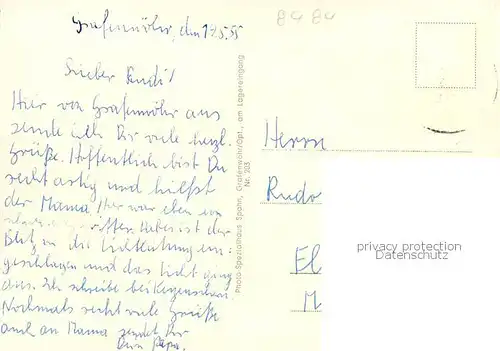 Grafenwöhr, den 19.5.55
8484
Lieber Rudi!
Hier von Grafenwöhr aus
sende ich Dir viele herzl.
Grüße. Hoffentlich bist Du
recht artig und hilfst
der Mama. Hier war eben ein
Gewitter. Dabei ist der
Blitz in die Lichtleitung ein-
geschlagen und das Licht ging
aus. Ich schreibe bei Kerzenschein.
Nochmals recht viele Grüße
auch an Mama sendet Dir
Dein Papa.
Photo-Spezialhaus Spahn, Grafenwöhr/Opf., am Lagereingang
Nr. 205
Herrn
Rudo
El
M
privacy protection
Datenschutz